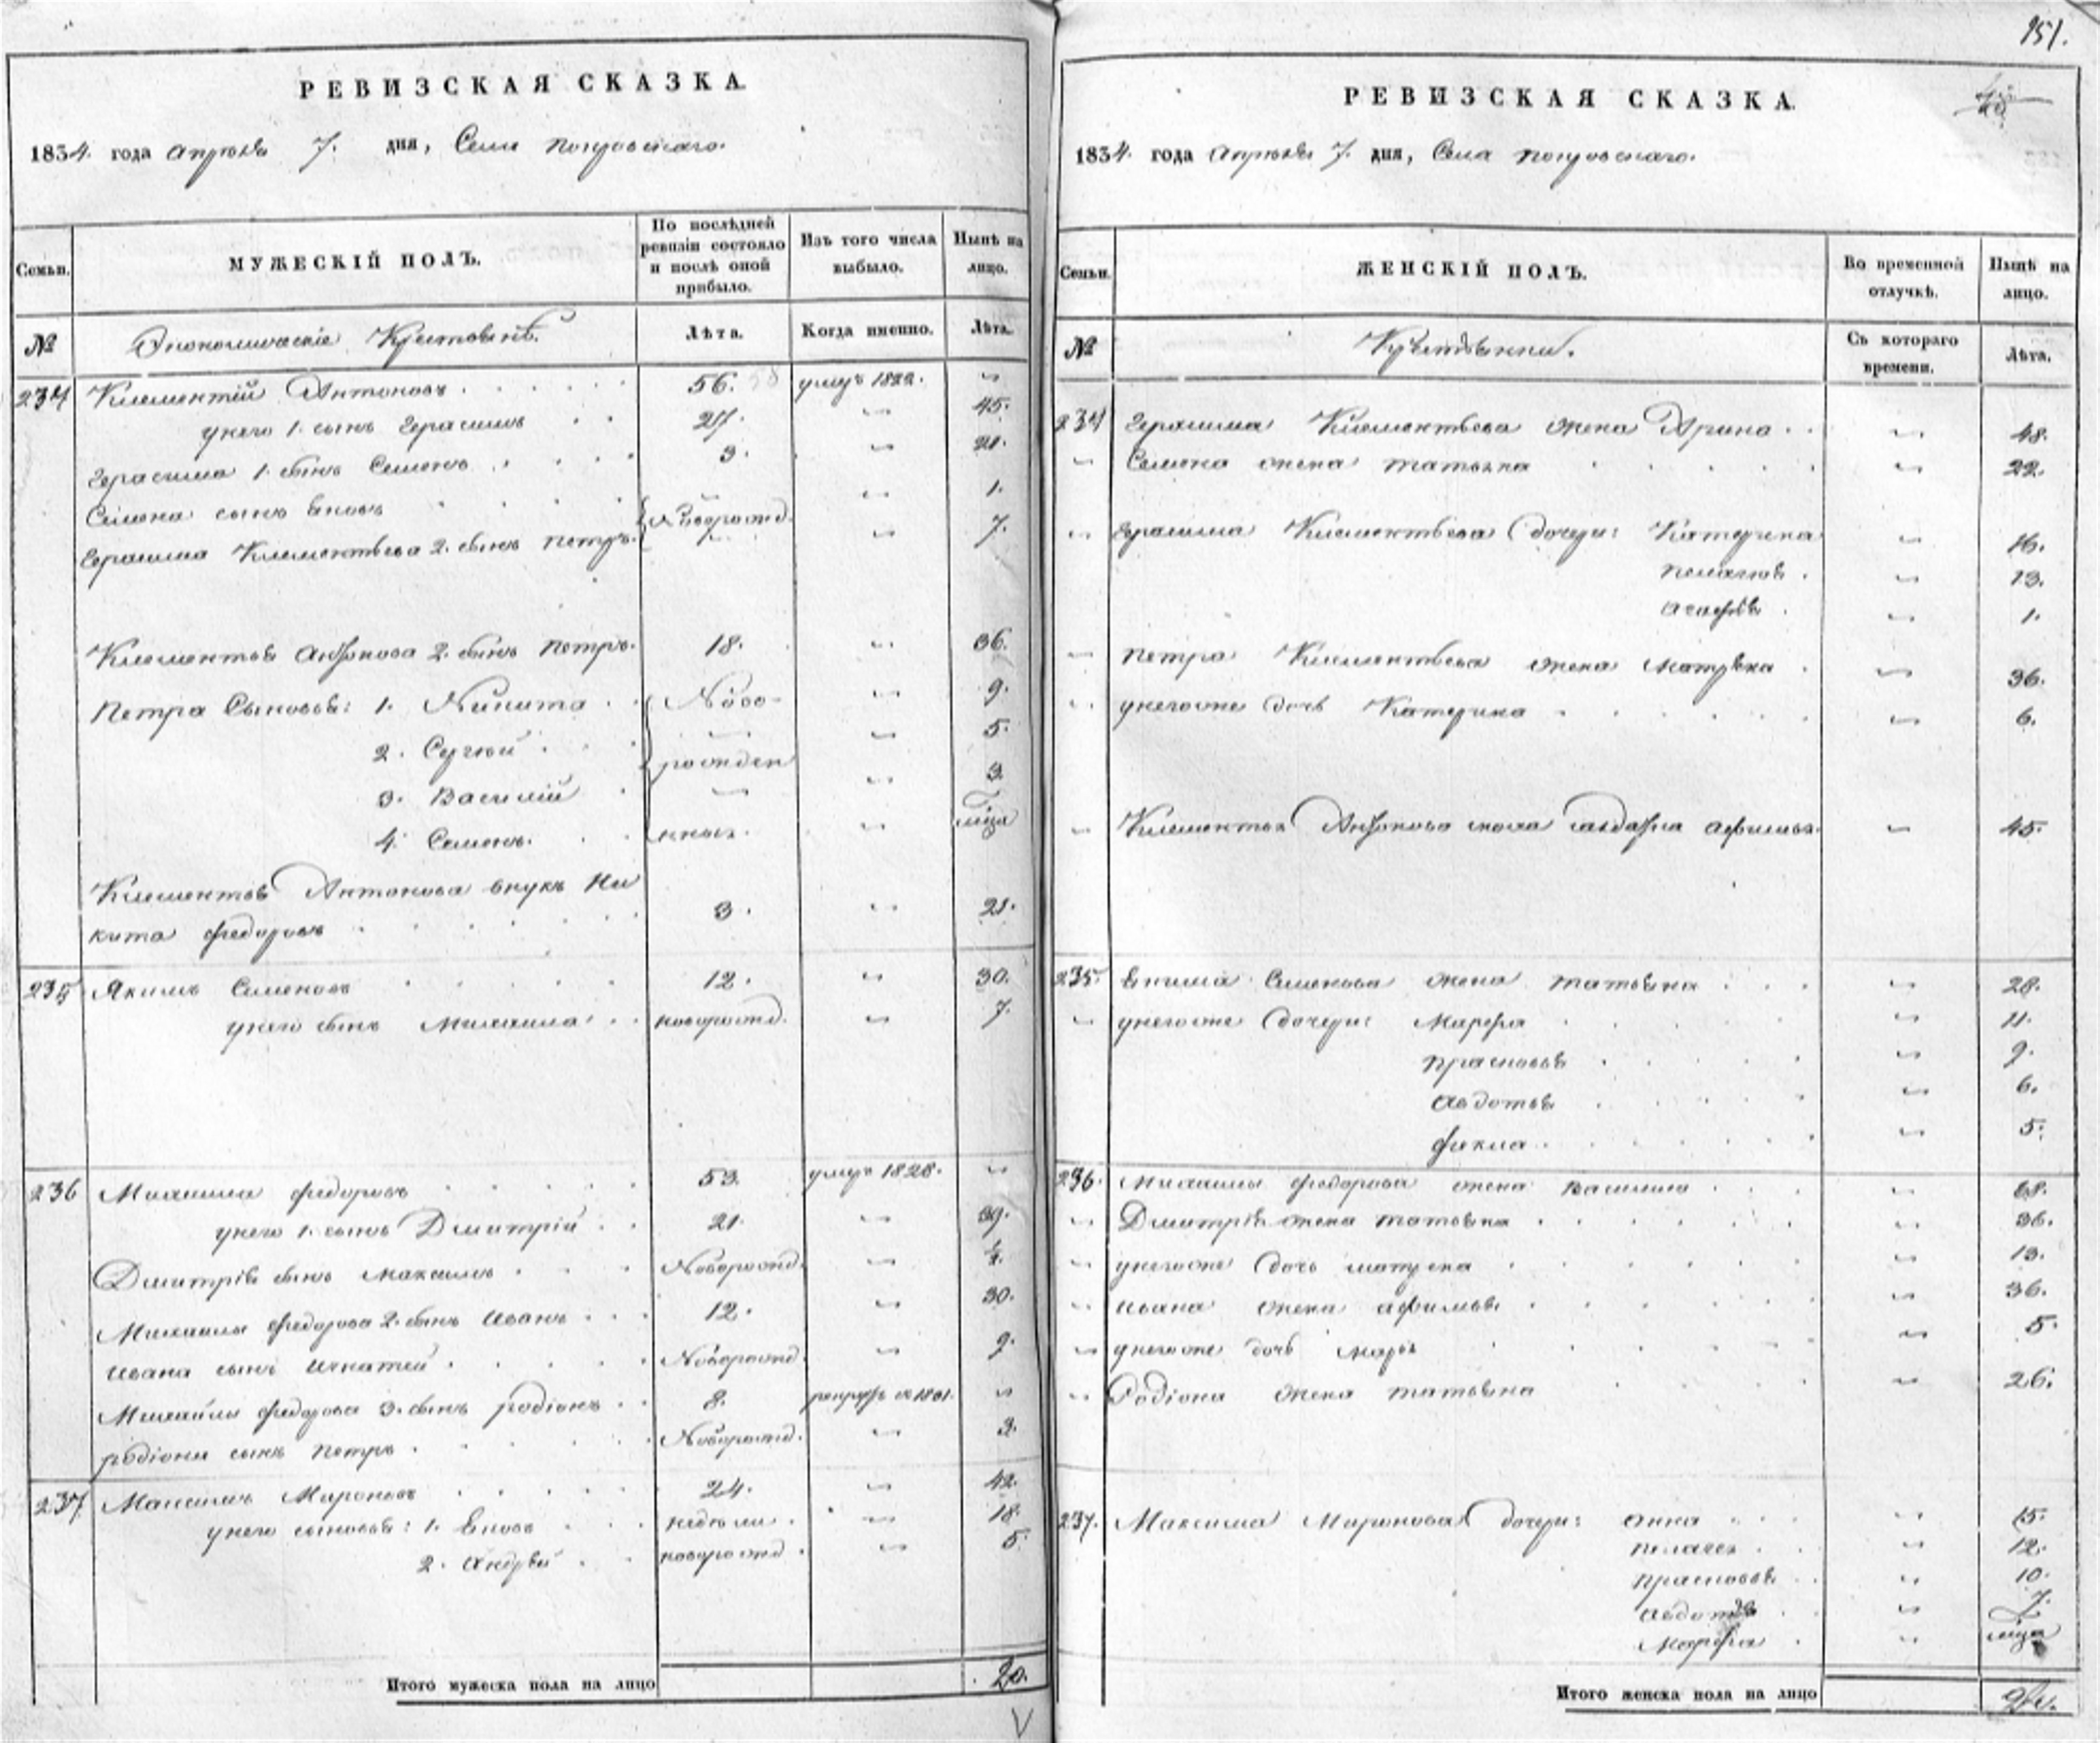 РЕВИЗСКАЯ СКАЗКА.
1834. года апреля 7. дня, Села Покровскаго.
Семьи.
МУЖЕСКІЙ ПОЛЪ.
По послѣдней ревизіи состояло и послѣ оной прибыло.
Изъ того числа выбыло.
Нынѣ на лицо.
№
Экономическіе Крестьянѣ.
Лѣта.
Когда именно.
Лѣта.
234 Климентій Антоновъ 56. умеръ 1822. "
у него 1. сынъ Герасимъ 27. " 45.
Герасима 1. сынъ Семенъ 3. " 21.
Семена сынъ " 1.
Герасима Климентьева 2. сынъ Петръ. новорожд. " 7.
Климентья Антонова 2. сынъ Петръ. 18. " 36.
Петра Сыновья: 1. Никита Ново- " 9.
2. Сергѣй " 5.
3. Василій рожден " 3.
4. Семенъ. ныхъ. "
Климентья Антонова внукъ Ни
кита Федоровъ 3. " 21.
235 Якимъ Семеновъ 12. " 30.
у него сынъ Михаила новорожд. " 7.
236 Михаила Федоровъ 53. умеръ 1828. "
у него 1. сынъ Дмитрій 21. " 39.
Дмитрія сынъ Максимъ Новорожд. "
Михаилы Федорова 2. сынъ Иванъ 12. " 30.
Ивана сынъ Игнатей Новорожд. " 9.
Михайлы Федорова 3. сынъ Родіонъ 8. "
Родіона сынъ Петръ Новорожд. " 3.
237. Максимъ Мироновъ 24. " 42.
у него сыновья: 1. недѣли " 18.
2. Андрей новорожд. " 5.
Итого мужеска пола на лицо 20.
151.
РЕВИЗСКАЯ СКАЗКА.
1834. года апреля 7. дня, Села Покровскаго.
Семьи.
ЖЕНСКІЙ ПОЛЪ.
Во временной отлучкѣ.
Нынѣ на лицо.
№
Крестьянки.
Съ котораго времени.
Лѣта.
234 Герасима Климентьева жена Арина " 48.
" Семена жена Татьяна " 22.
" Герасима Климентьева дочери: Катерина " 16.
Пелагея " 13.
Агафья " 1.
" Петра Климентьева жена Матрена " 36.
" у него же дочь Катерина " 6.
" Климентья Антонова " 45.
235. Екима Семенова жена Татьяна " 28.
" у него же дочери: Марфа " 11.
Прасковья " 9.
Авдотья " 6.
Фекла " 5.
236. Михаилы Федорова жена Василиса " 68.
" Дмитрія жена Татьяна " 36.
" у него же дочь Матрена " 13.
" Ивана жена Афимья " 36.
" у него же дочь Марья " 5.
" Родіона жена Татьяна " 26.
237. Максима Миронова дочери: Анна " 15.
Пелагея " 12.
Прасковья " 10.
Авдотья " 7.
Марфа "
Итого женска пола на лицо